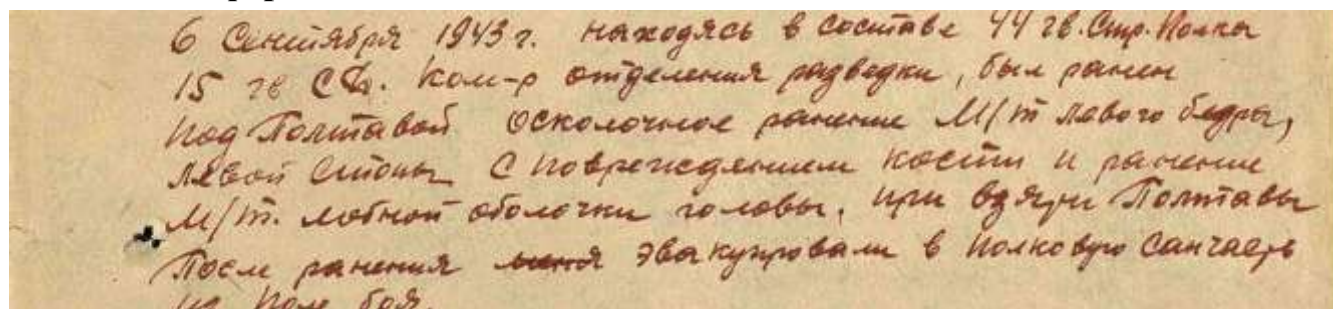 6 Сентября 1943 г. находясь в составе 44 гв. Стр. Полка
15 гв СД. Ком-р отделения разведки, был ранен
под Полтавой осколочное ранение М/т левого бедра,
левой стопы с повреждением кости и ранение
М/т. лобной оболочки головы, при взятии Полтавы
После ранения эвакуировали в полковую санчасть
поле боя.